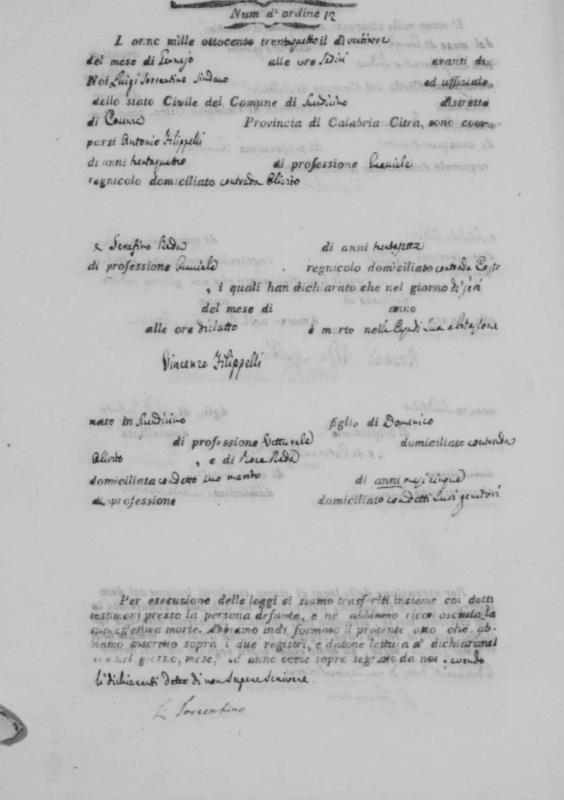 Num d'ordine 12
L'anno mille ottocento trentaquattro il dì ventinove
del mese di Gennajo alle ore sedici avanti di
Noi Luigi Sorrentino Sindaco ed uffiziale
dello stato Civile del Comune di distretto
di Cosenza Provincia di Calabria Citra, sono com-
parsi Antonio Filippelli
di anni trentaquattro di professione
regnicolo domiciliato contrada
e Serafino Reda di anni trentasette
di professione regnicolo domiciliato contrada
, i quali han dichiarato che nel giorno di jeri
del mese di anno
alle ore diciotto è morto nella Casa di sua abitazione
Vincenzo Filippelli
nato in figlio di Domenico
di professione Vetturale domiciliato contrada
, e di Rosa Reda
domiciliata con detto suo marito di anni mesi cinque
di professione domiciliato con detti suoi genitori
Per esecuzione delle leggi si siamo trasferiti insieme coi detti
testimonj presso la persona defunta, e ne abbiamo riconosciuta la
sua effettiva morte. Abbiamo indi formato il presente atto che ab-
biamo inscritto sopra i due registri, e datone lettura a' dichiaranti
nel giorno, mese, ed anno come sopra segnato da noi, avendo
li dichiaranti detto di non sapere scrivere.
L. Sorrentino